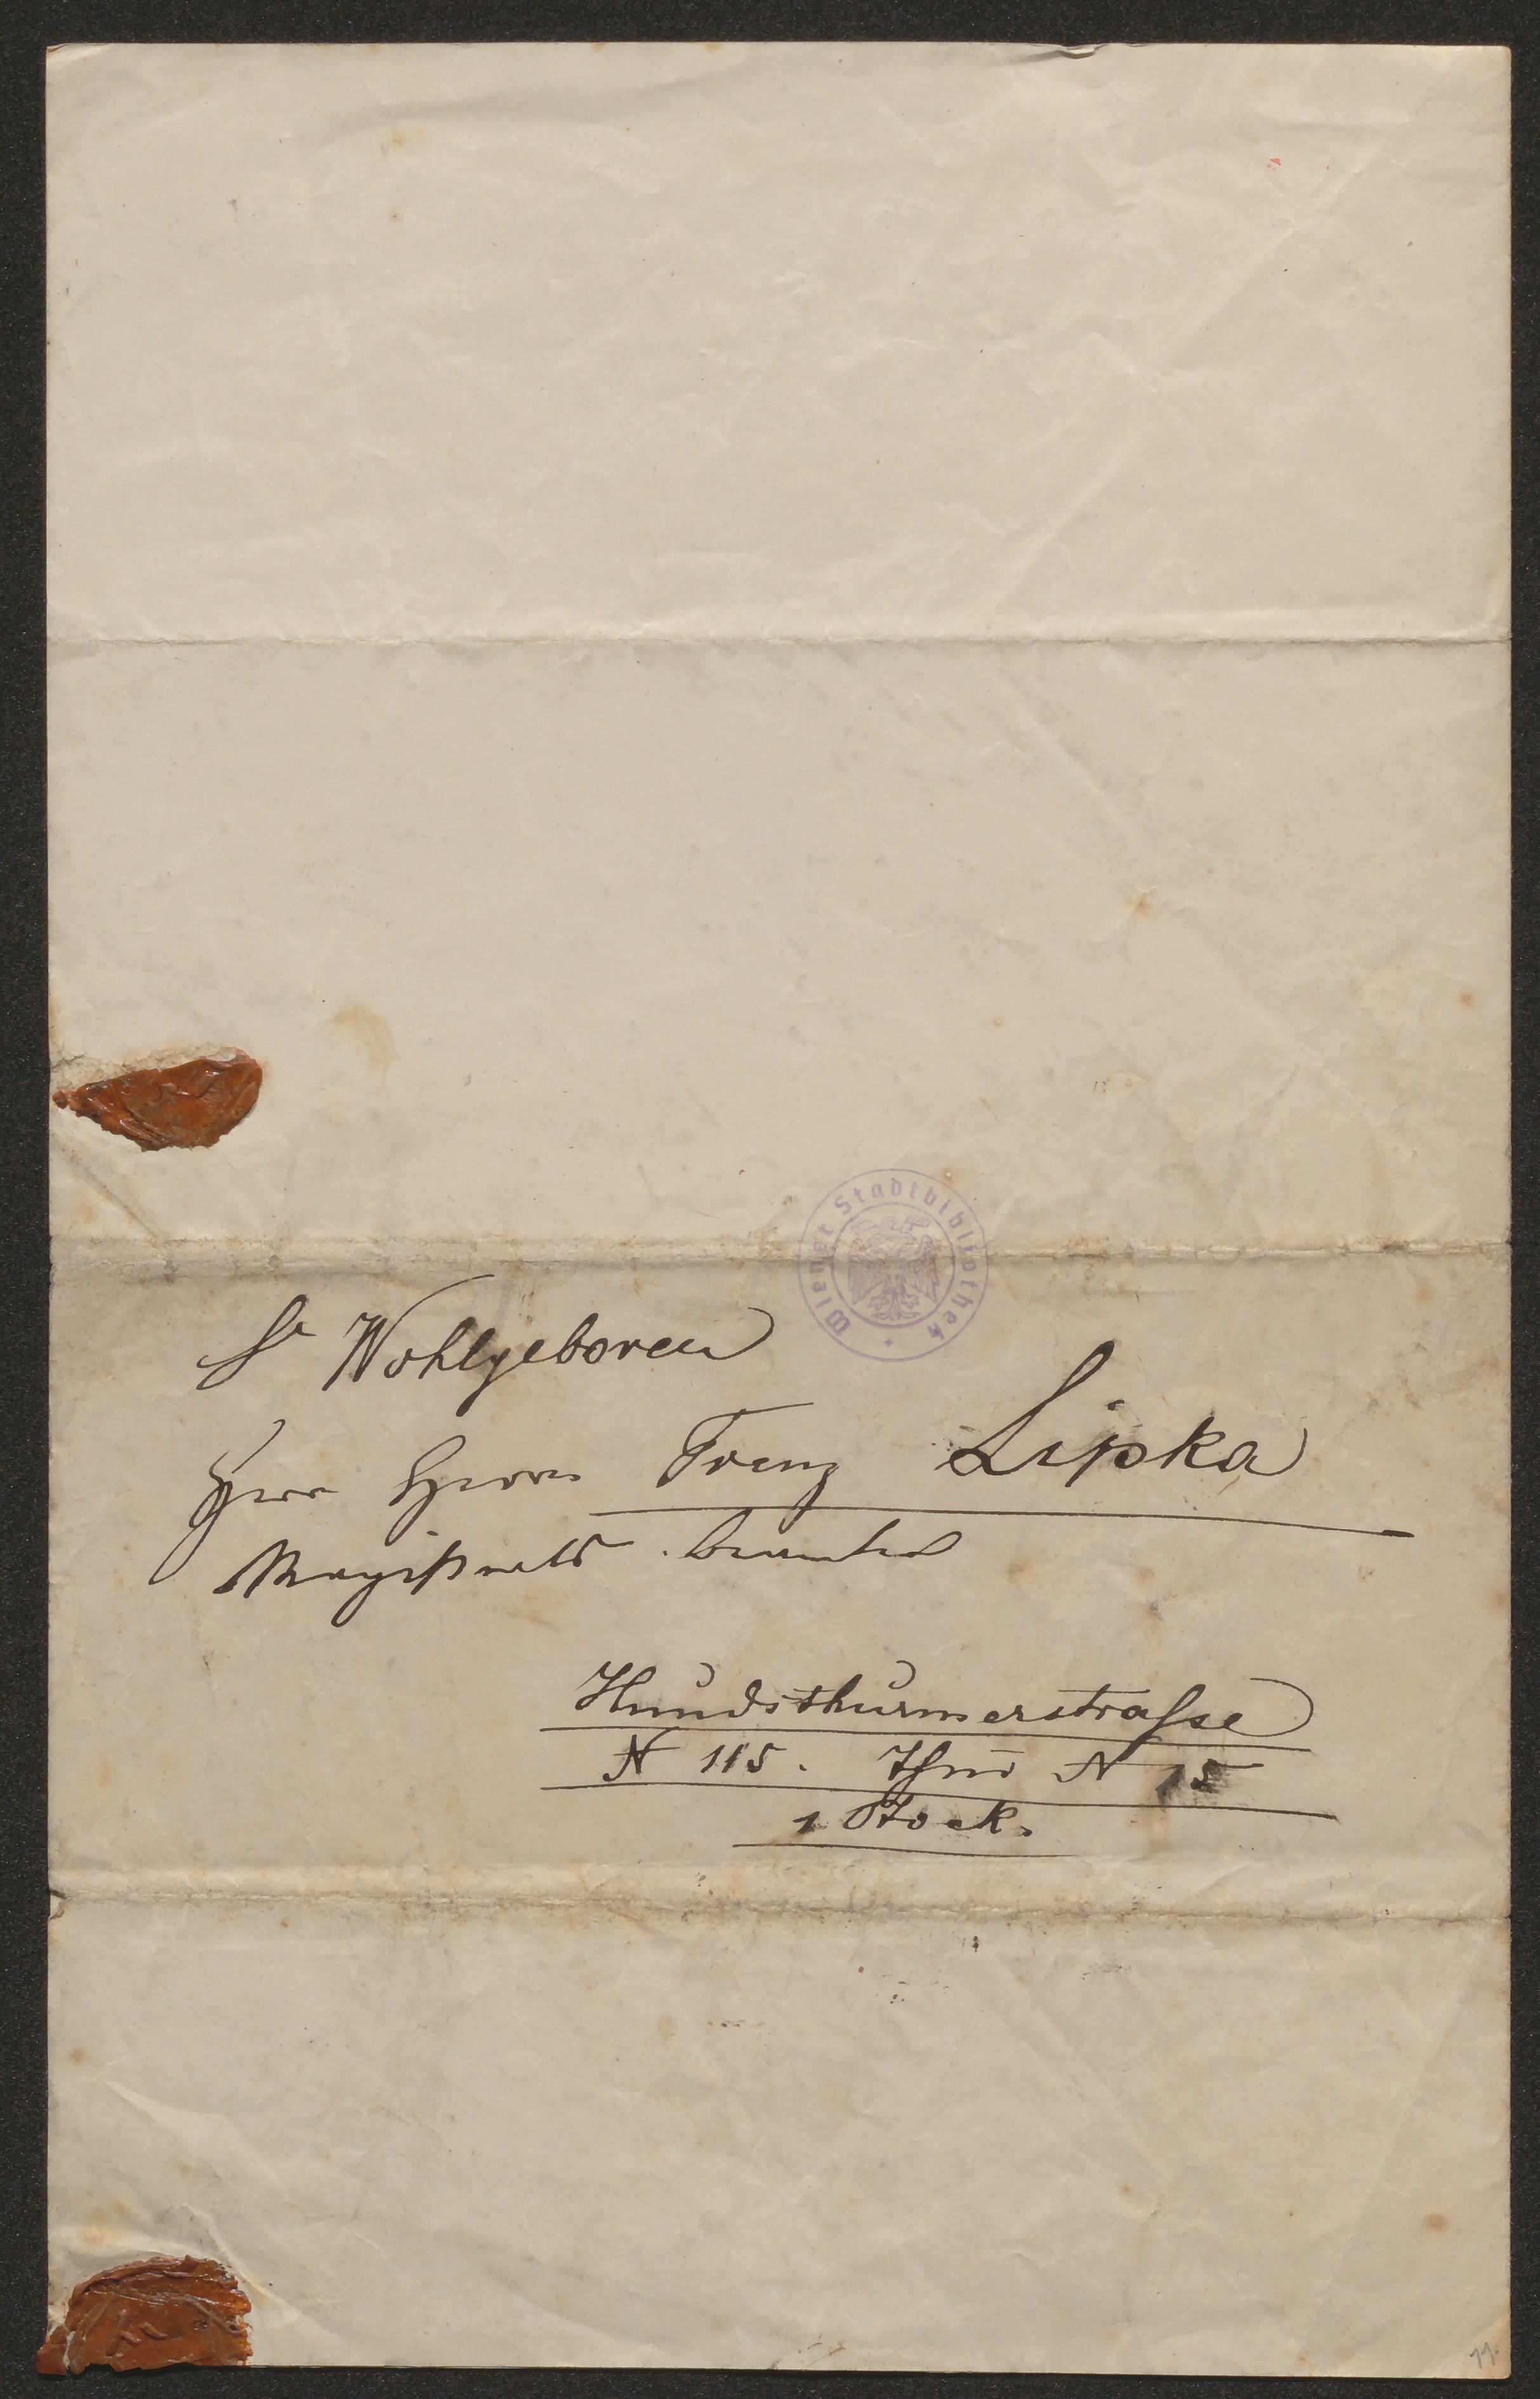 Wiener Stadtbibliothek
Sr Wohlgeboren
Herrn Franz Lipka
Magistrats beamter
Hundsthurmerstrasse
N 115. Thür N 15
1 Stock.